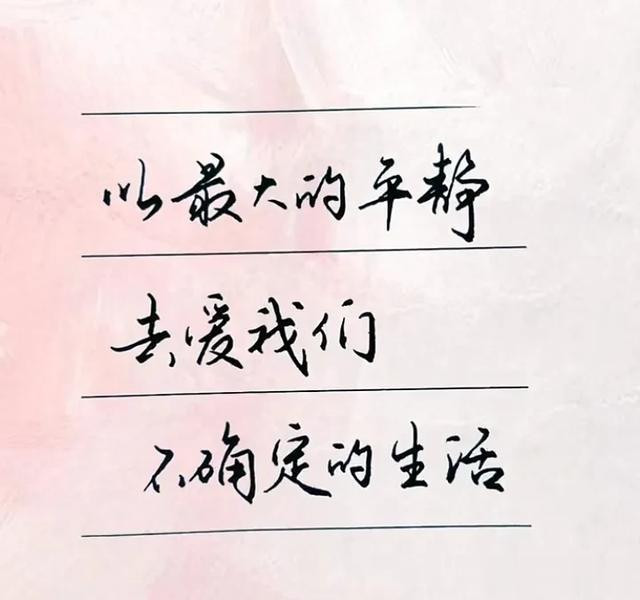 以最大的平静
去爱我们
不确定的生活